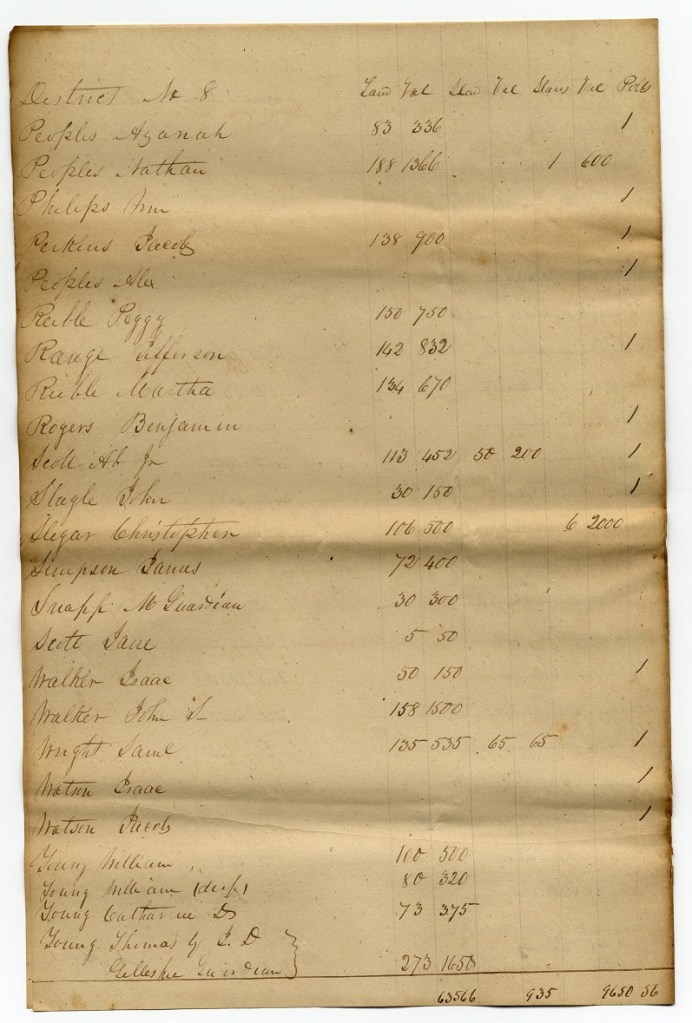 District No 8 Land Val Land Val Slaves Val Polls
Peoples Azanah 83 336 1
Peoples Nathan 188 1366 1 600
Philips Wm 1
Perkins Jacob 138 900 1
Peoples Alex 1
Reible Peggy 150 750
Range Jefferson 142 832 1
Reible Martha 134 670
Rogers Benjamin 1
Scott Ab Jr 113 452 50 200 1
Slagle John 30 150 1
Slegar Christopher 106 500 6 2000
Simpson James 72 400
Snapp M Guardian 30 300
Scott Jane 5 50
Walker Isaac 50 150 1
Walker John 158 1500
Wright Saml 135 535 65 65 1
Watson Isaac 1
Watson Jacob 1
Young William 100 500
Young William 80 320
Young Catharine D 73 375
Young Thomas by J. D
Gilleslie Guardian 273 1650
63566 935 9650 56